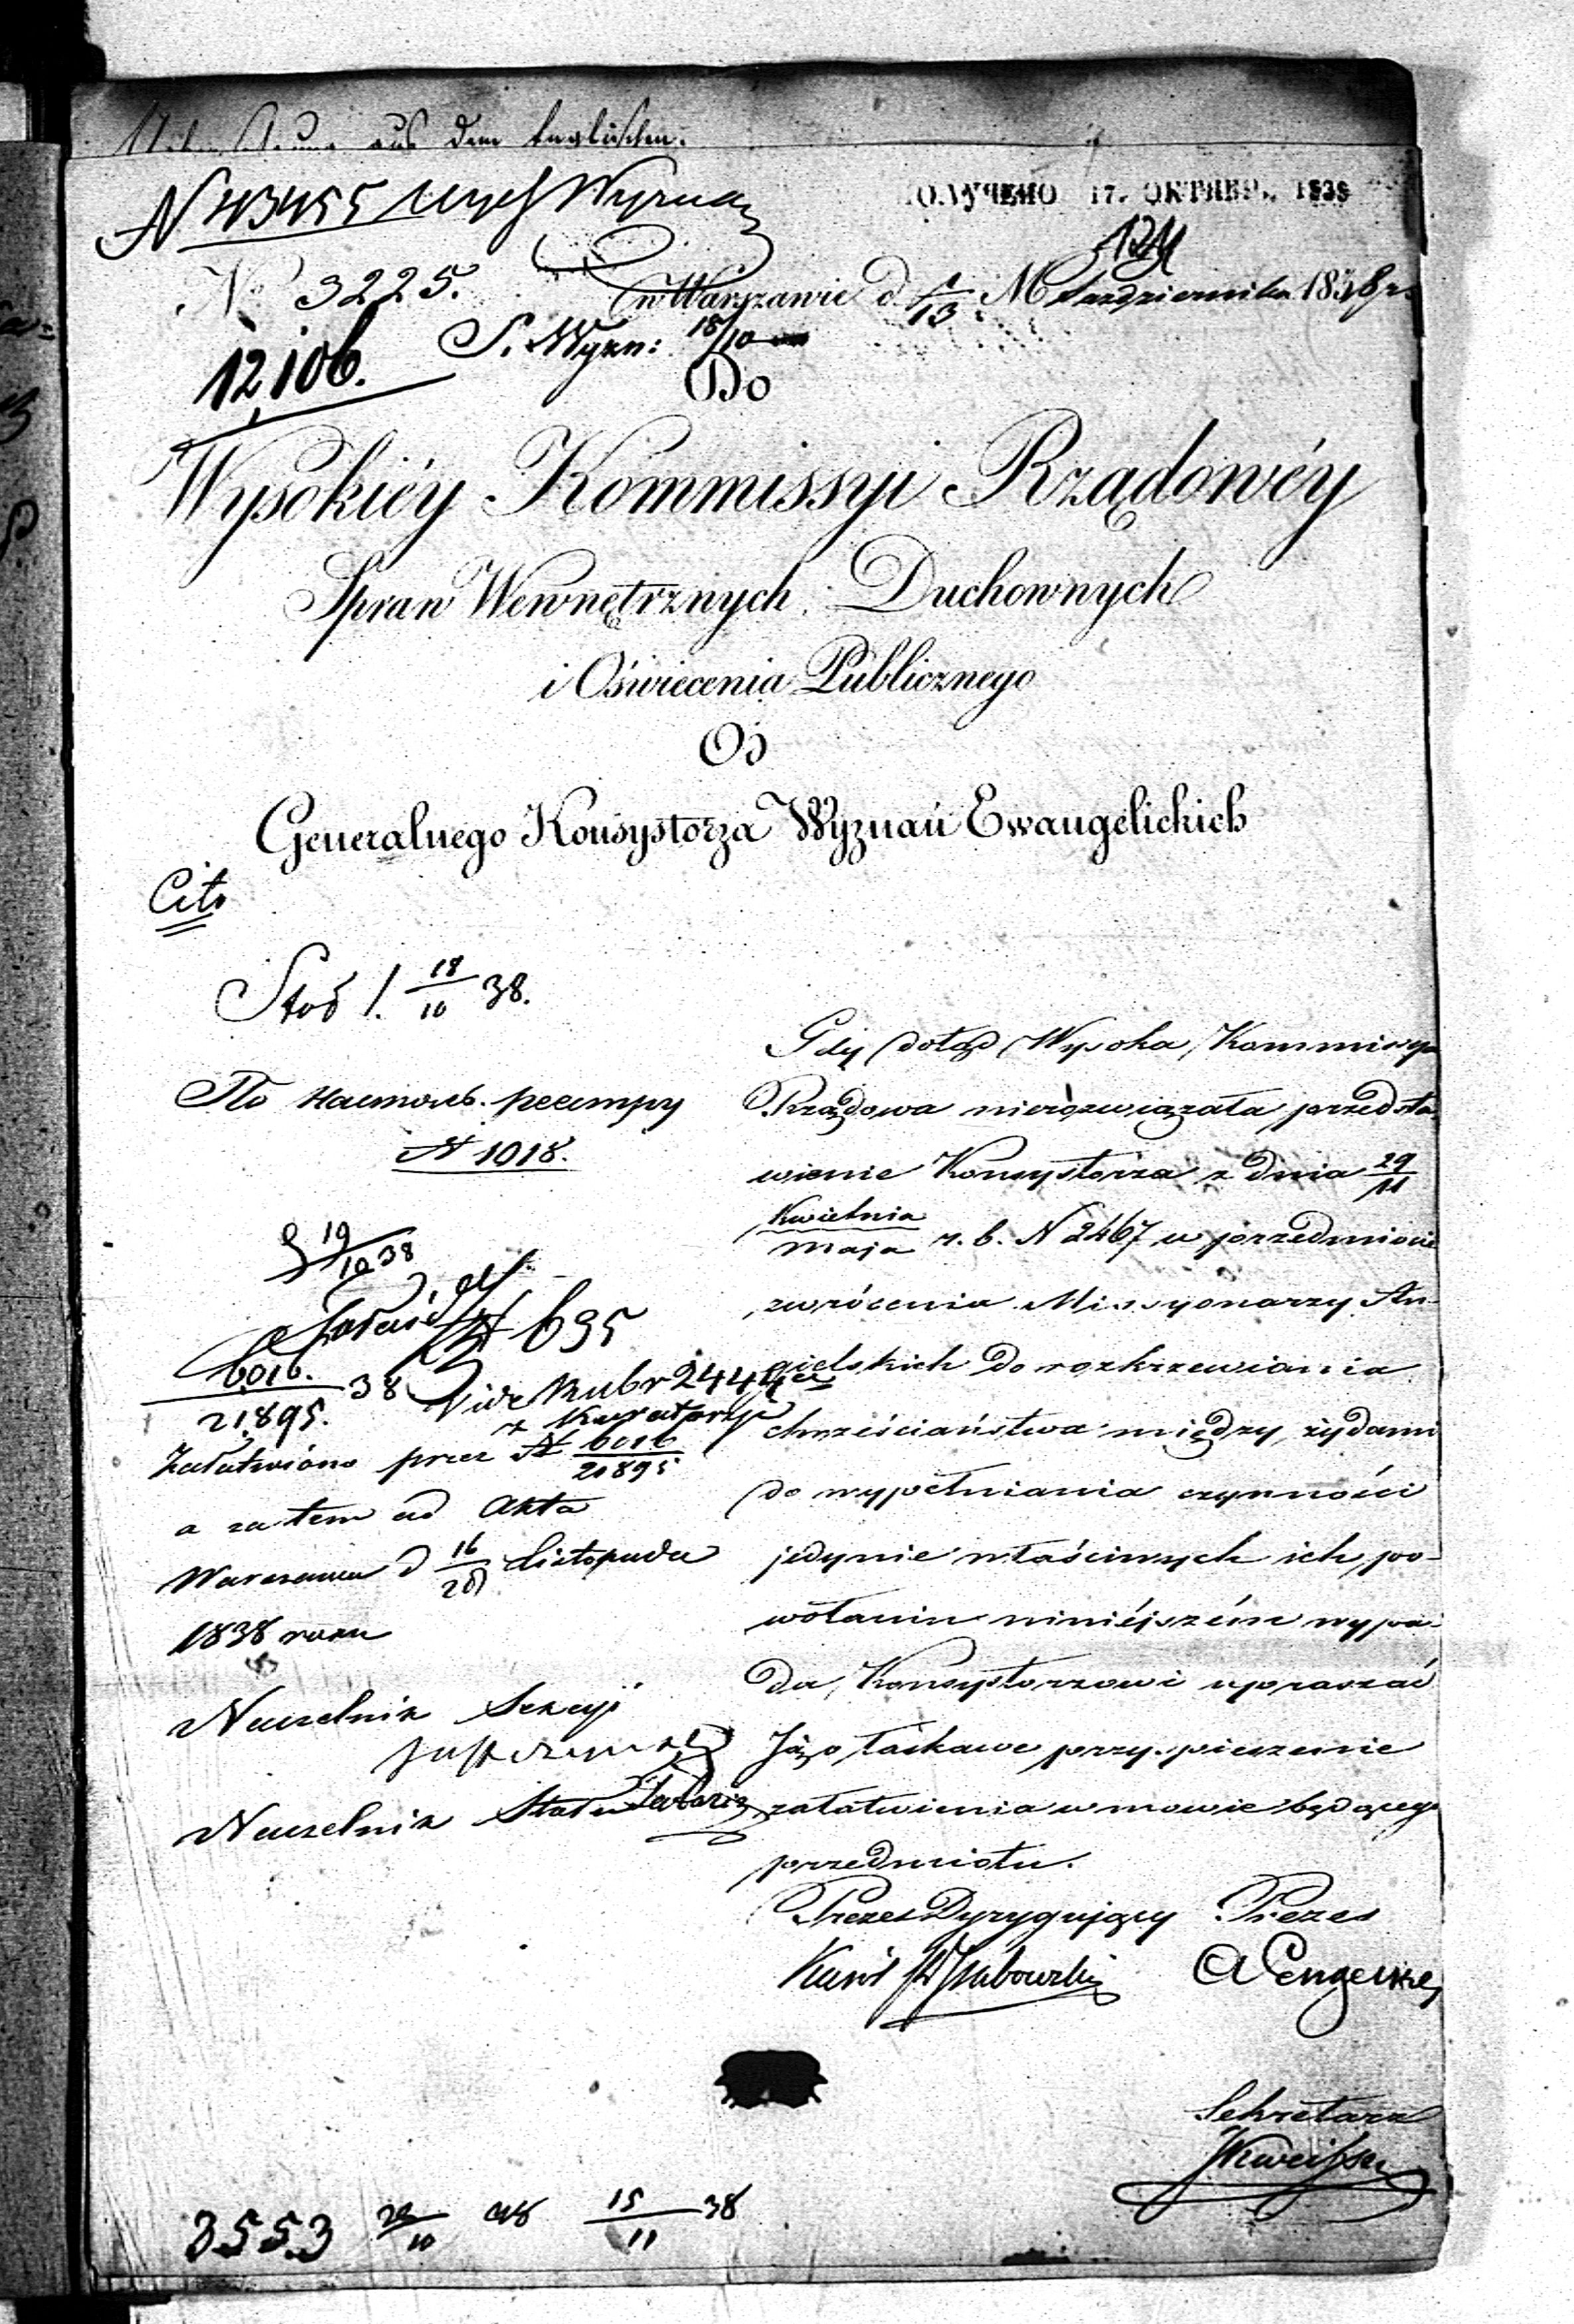 aus dem Englischen.
N 43455 Wyzna
ОЛУЧЕНО 17. ОКТЯБР. 1838
No 3225.
w Warszawie d. 1/13 M Października 1838 r.
12106.
S. Wyzn: 18/10
Do
Wysokiéy Kommissyi Rządowéy
Spraw Wewnętrznych Duchownych
i Oświecenia Publicznego
Od
Generalnego Konsystorza Wyznań Ewangelickich
Cito
Stoł 1. 18/10 38.
По настол. реестру
N 1018.
19/10 38
N 695
6016./21895. 38 Vide Nubr 2444
z Kuratoryi
Załatwiono przez N 6016/21895
a zatem ad Akta
Warszawa d 16/28 Listopada
1838 roku
Naczelnik Sekcyi
Naczelnik
Gdy dotąd Wysoka Kommissya
Rządowa nierozwiązała przedsta-
wienie Konsystorza z dnia 29/11
Kwietnia/Maja r. b. N 2467 w przedmiocie
zwrócenia Missyonarzy An-
gielskich do rozkrzewiania
chrześciaństwa między żydami
do wypełniania czynności
jedynie właściwych ich po-
wołaniu niniéjszém wypa-
da Konsystorzowi upraszać
Jéj o łaskawe przyspieszenie
załatwienia w mowie będącego
przedmiotu.
Prezes Dyrygujący Prezes
Sekretarz
3553 29/10 15/11 38